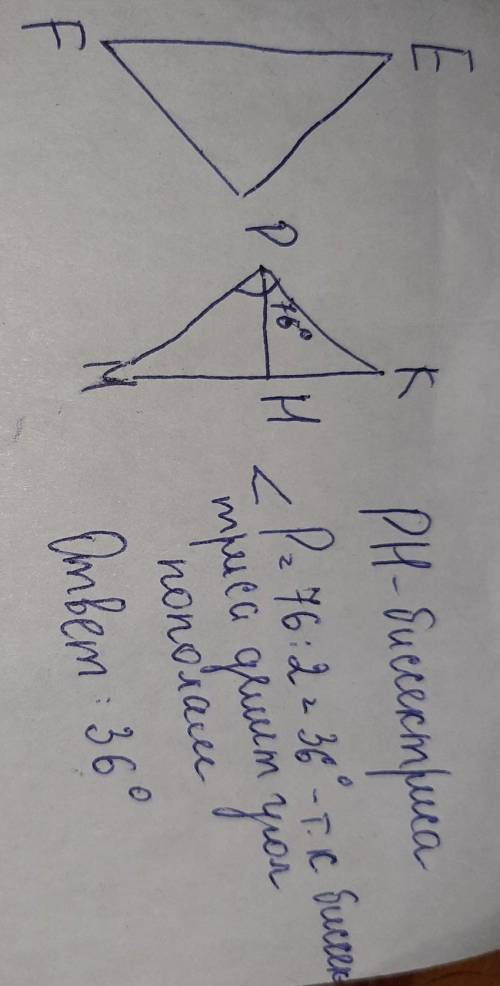 F
E
P
76°
M
H
K
PH - биссектриса
< P = 76 : 2 = 36° - т. к биссек
триса делит угол
пополам
Ответ : 36°